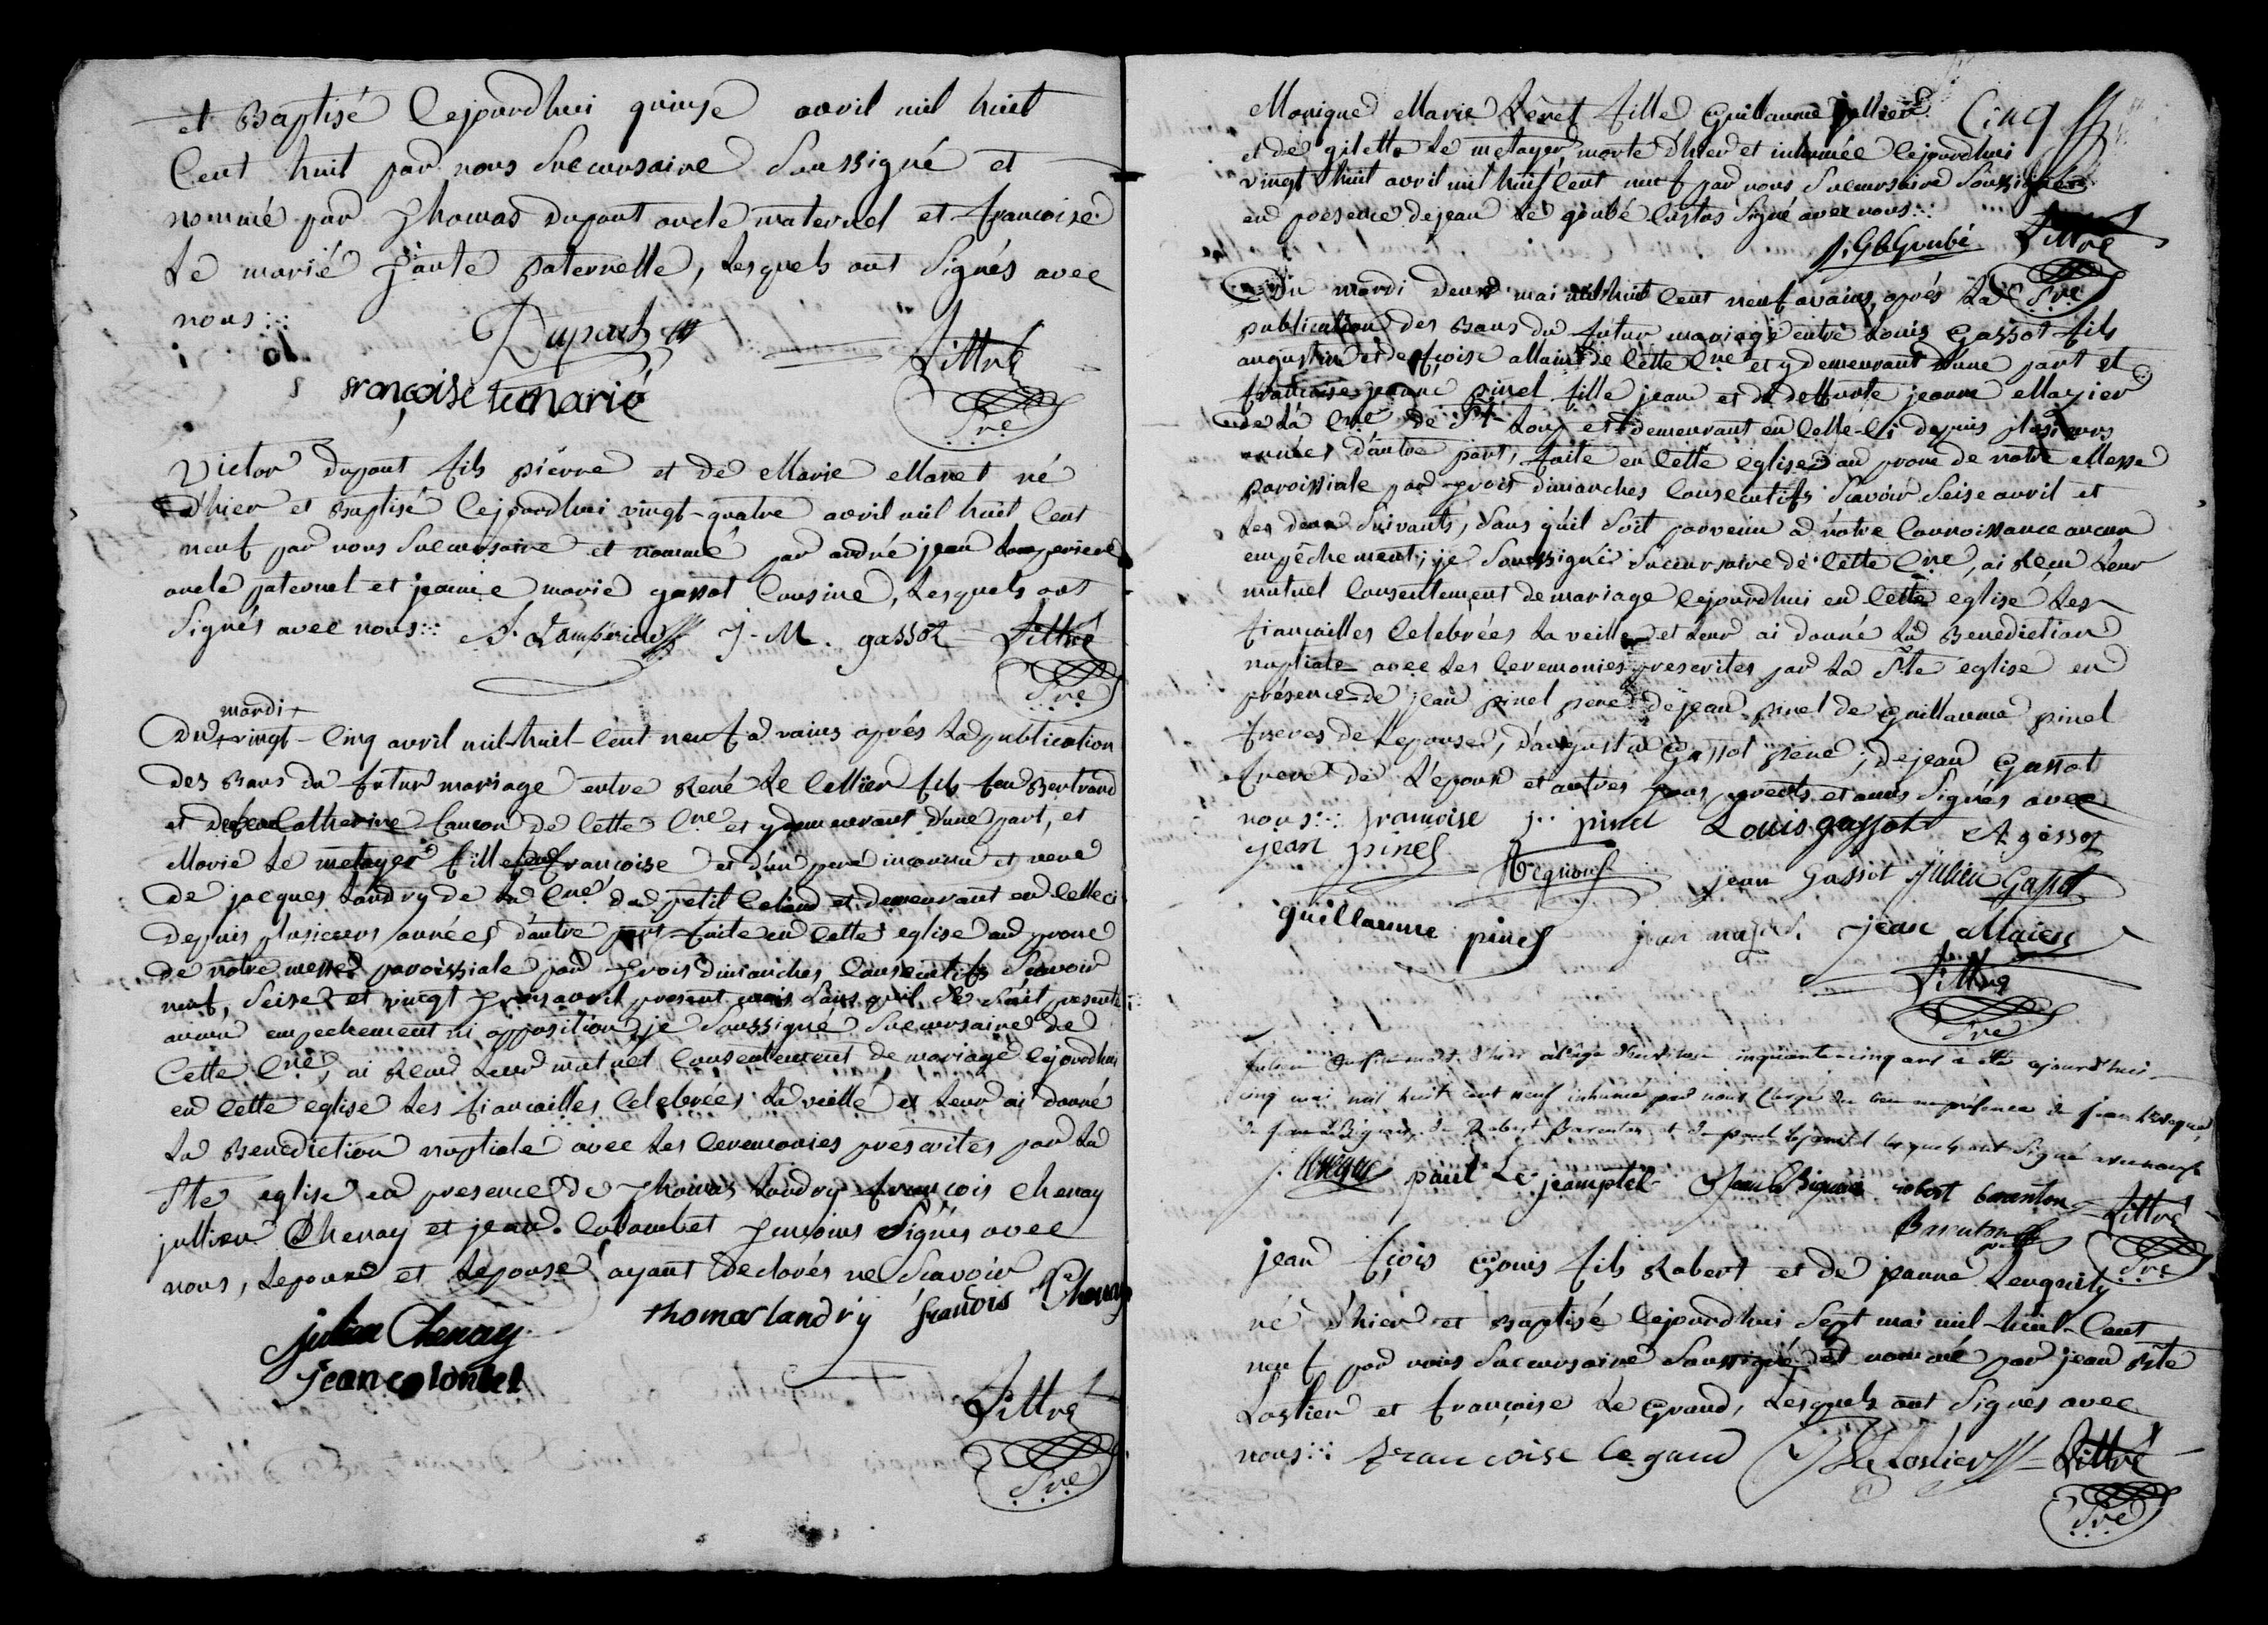 et Baptisé Cejourdhui quinze avril mil huit
Cent huit par nous Succursaire Soussigné et
nommé par Thomas dupont oncle maternel et francoise
Le marié tante paternelle, Lesquels ont Signés avec
nous
Dupont Littré
françoise le marié Sre
Victor dupont fils pierre et de Marie Manet né
d'hier et Baptisé Cejourdhui vingt-quatre avril mil huit Cent
neuf par nous Succursaire et nommé par andré jean Lamperiere
oncle paternel et jeanne marie gassot Cousine, Lesquels ont
Signés avec nous J. M. gassot Littré
Sre
mardi
Du vingt-Cinq avril mil-huit-Cent neuf avons après La publication
des Bans du futur mariage entre René Le Cellier fils feu Bertrand
et de feu Catherine de Cette Cne et y demeurant d'une part, et
Marie Le metayer fille feu francoise et d'un pere inconnu et veuve
de jacques Landry de La Cne du petit Celland et demeurant en Celleci
depuis plusieurs années d'autre part faite en Cette eglise au prone
de notre messe paroissiale par trois dimanches Consecutifs Scavoir
neuf, Seise et vingt trois avril present mois Sans qu'il Se Soit presenté
aucun empechement ni opposition, je Soussigné Succursaire de
Cette Cne, ai Recu Leur mutuel Consentement de mariage Cejourdhui
en Cette eglise Les fiancailles Celebrées La veille et Leur ai donné
La Benediction nuptiale avec Les Ceremonies prescrites par La
Ste eglise en presence de Thomas Landry francois Chenay
jullien Chenay et jean Colombet temoins Signés avec
nous, Lepoux et Lepouse ayant declarés ne Scavoir
julien Chenay thomas landry francois Chenay
jean colombel
Littré
Sre
Monique Marie fille Guillaume Cinq
et de gilette Le metayer morte d'hier et inhumée Cejourdhui
vingt huit avril mil huit Cent neuf par nous Succursaire Soussigné
en presence de jean Le goubé Custos Signé avec nous
Littré
Sre
Du mardi deux mai mil huit Cent neuf avons après La
publication des Bans du futur mariage entre Louis Gassot fils
augustin et de fcoise allain de Cette Cne et y demeurant d'une part et
francoise jeanne pinel fille jean et de deffunte jeanne
de La Cne de St Loup et demeurant en Celle-Ci depuis plusieurs
années d'autre part, faite en Cette eglise au prone de notre Messe
paroissiale par trois dimanches Consecutifs Scavoir Seise avril et
Les deux Suivants, Sans qu'il Soit parvenu a notre Connoissance aucun
empêchement, je Soussigné Succursaire de Cette Cne, ai Recu Leur
mutuel Consentement de mariage Cejourdhui en Cette eglise Les
fiancailles Celebrées La veille et Leur ai donné La Benediction
nuptiale avec Les Ceremonies prescrites par La Ste eglise en
présence de jean pinel pere de jean pinel de Guillaume pinel
freres de Lepouse, d'augustin Gassot pere, de jean Gassot
frere de L'epoux et autres parents et amis Signés avec
nous francoise j. pinel Louis gassot A gassot
jean pinel
jean Gassot Julien Gassot
guillaume pinel jean allain
Littré
Sre
mort d'hier a l'age cinquante cinq ans a été cejourd'hui
cinq mai mil huit cent neuf inhumé par nous Clergé du lieu en présence de
de Robert Barenton et de lesquels ont Signé avec nous
paul Le robert barenton Littré
Barenton Sre
jean fcois fils Robert et de jeanne
né d'hier et Baptisé Cejourdhui Sept mai mil-huit-Cent
neuf par nous Succursaire Soussigné et nommé par jean Bte
Loslier et francoise Le Grand, Lesquels ont Signés avec
nous francoise le grand Loslier Littré
Sre